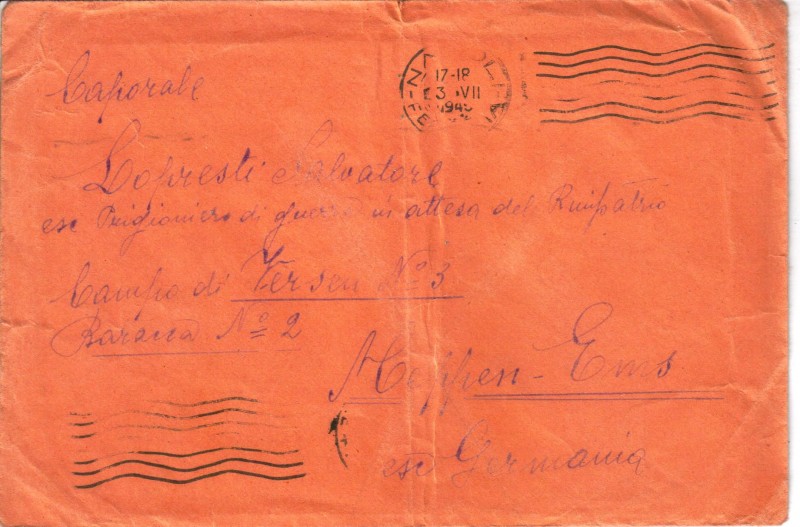 17-18
3 VII
Caporale
Lopresti Salvatore
ex Prigioniero di guerra in attesa del Rimpatrio
Campo di Versen Nº 3
Baracca Nº 2
Meppen - Ems
ex Germania